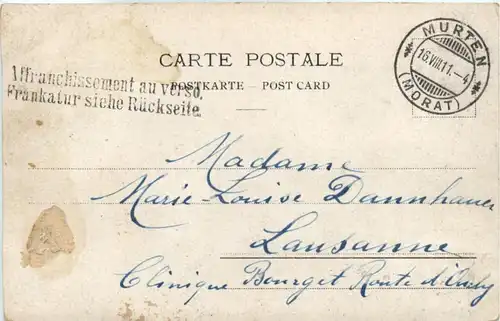 CARTE POSTALE
POSTKARTE – POST CARD
Affranchissement au verso.
Frankatur siehe Rückseite.
MURTEN
16.VIII.11.-4
(MORAT)
Madame
Marie-Louise Dannhauer
Lausanne
Clinique Bourget Route d'Ouchy